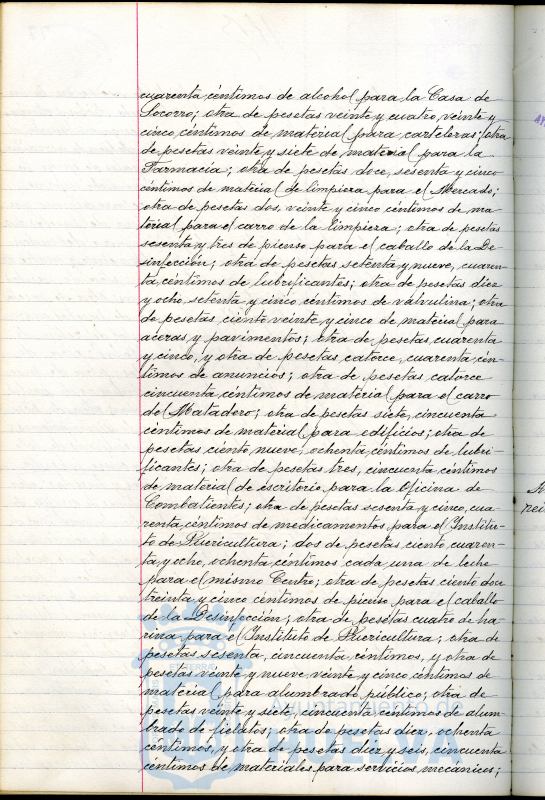 cuarenta céntimos de alcohol para la Casa de
Socorro; otra de pesetas veinte y cuatro, veinte y
cinco céntimos de material para carteleras; otra
de pesetas veinte y siete de material para la
Farmacia; otra de pesetas doce, sesenta y cinco
céntimos de material de limpieza para el Mercado;
otra de pesetas dos, veinte y cinco céntimos de ma-
terial para el carro de la limpieza; otra de pesetas
sesenta y tres de pienso para el caballo de la De-
sinfección; otra de pesetas setenta y nueve, cuaren-
ta céntimos de lubrificantes; otra de pesetas diez
y ocho, setenta y cinco céntimos de valvulina; otra
de pesetas ciento veinte y cinco de material para
aceras y pavimentos; otra de pesetas cuarenta
y cinco, y otra de pesetas catorce, cuarenta cén-
timos de anuncios; otra de pesetas catorce
cincuenta céntimos de material para el carro
del Matadero; otra de pesetas siete, cincuenta
céntimos de material para edificios; otra de
pesetas ciento nueve, ochenta céntimos de lubri-
ficantes; otra de pesetas tres, cincuenta céntimos
de material de escritorio para la Oficina de
Combatientes; otra de pesetas sesenta y cinco, cua-
renta céntimos de medicamentos para el Institu-
to de Puericultura; dos de pesetas ciento cuaren-
ta y ocho, ochenta céntimos cada una de leche
para el mismo Centro; otra de pesetas ciento doce
treinta y cinco céntimos de pienso para el caballo
de la Desinfección; otra de pesetas cuatro de ha-
rina para el Instituto de Puericultura; otra de
pesetas sesenta, cincuenta céntimos, y otra de
pesetas veinte y nueve veinte y cinco céntimos de
material para alumbrado público; otra de
pesetas veinte y siete, cincuenta céntimos de alum-
brado de fielatos; otra de pesetas diez, ochenta
céntimos, y otra de pesetas diez y seis, cincuenta
céntimos de materiales para servicios mecánicos;
Ayuntamiento de
HUELVA